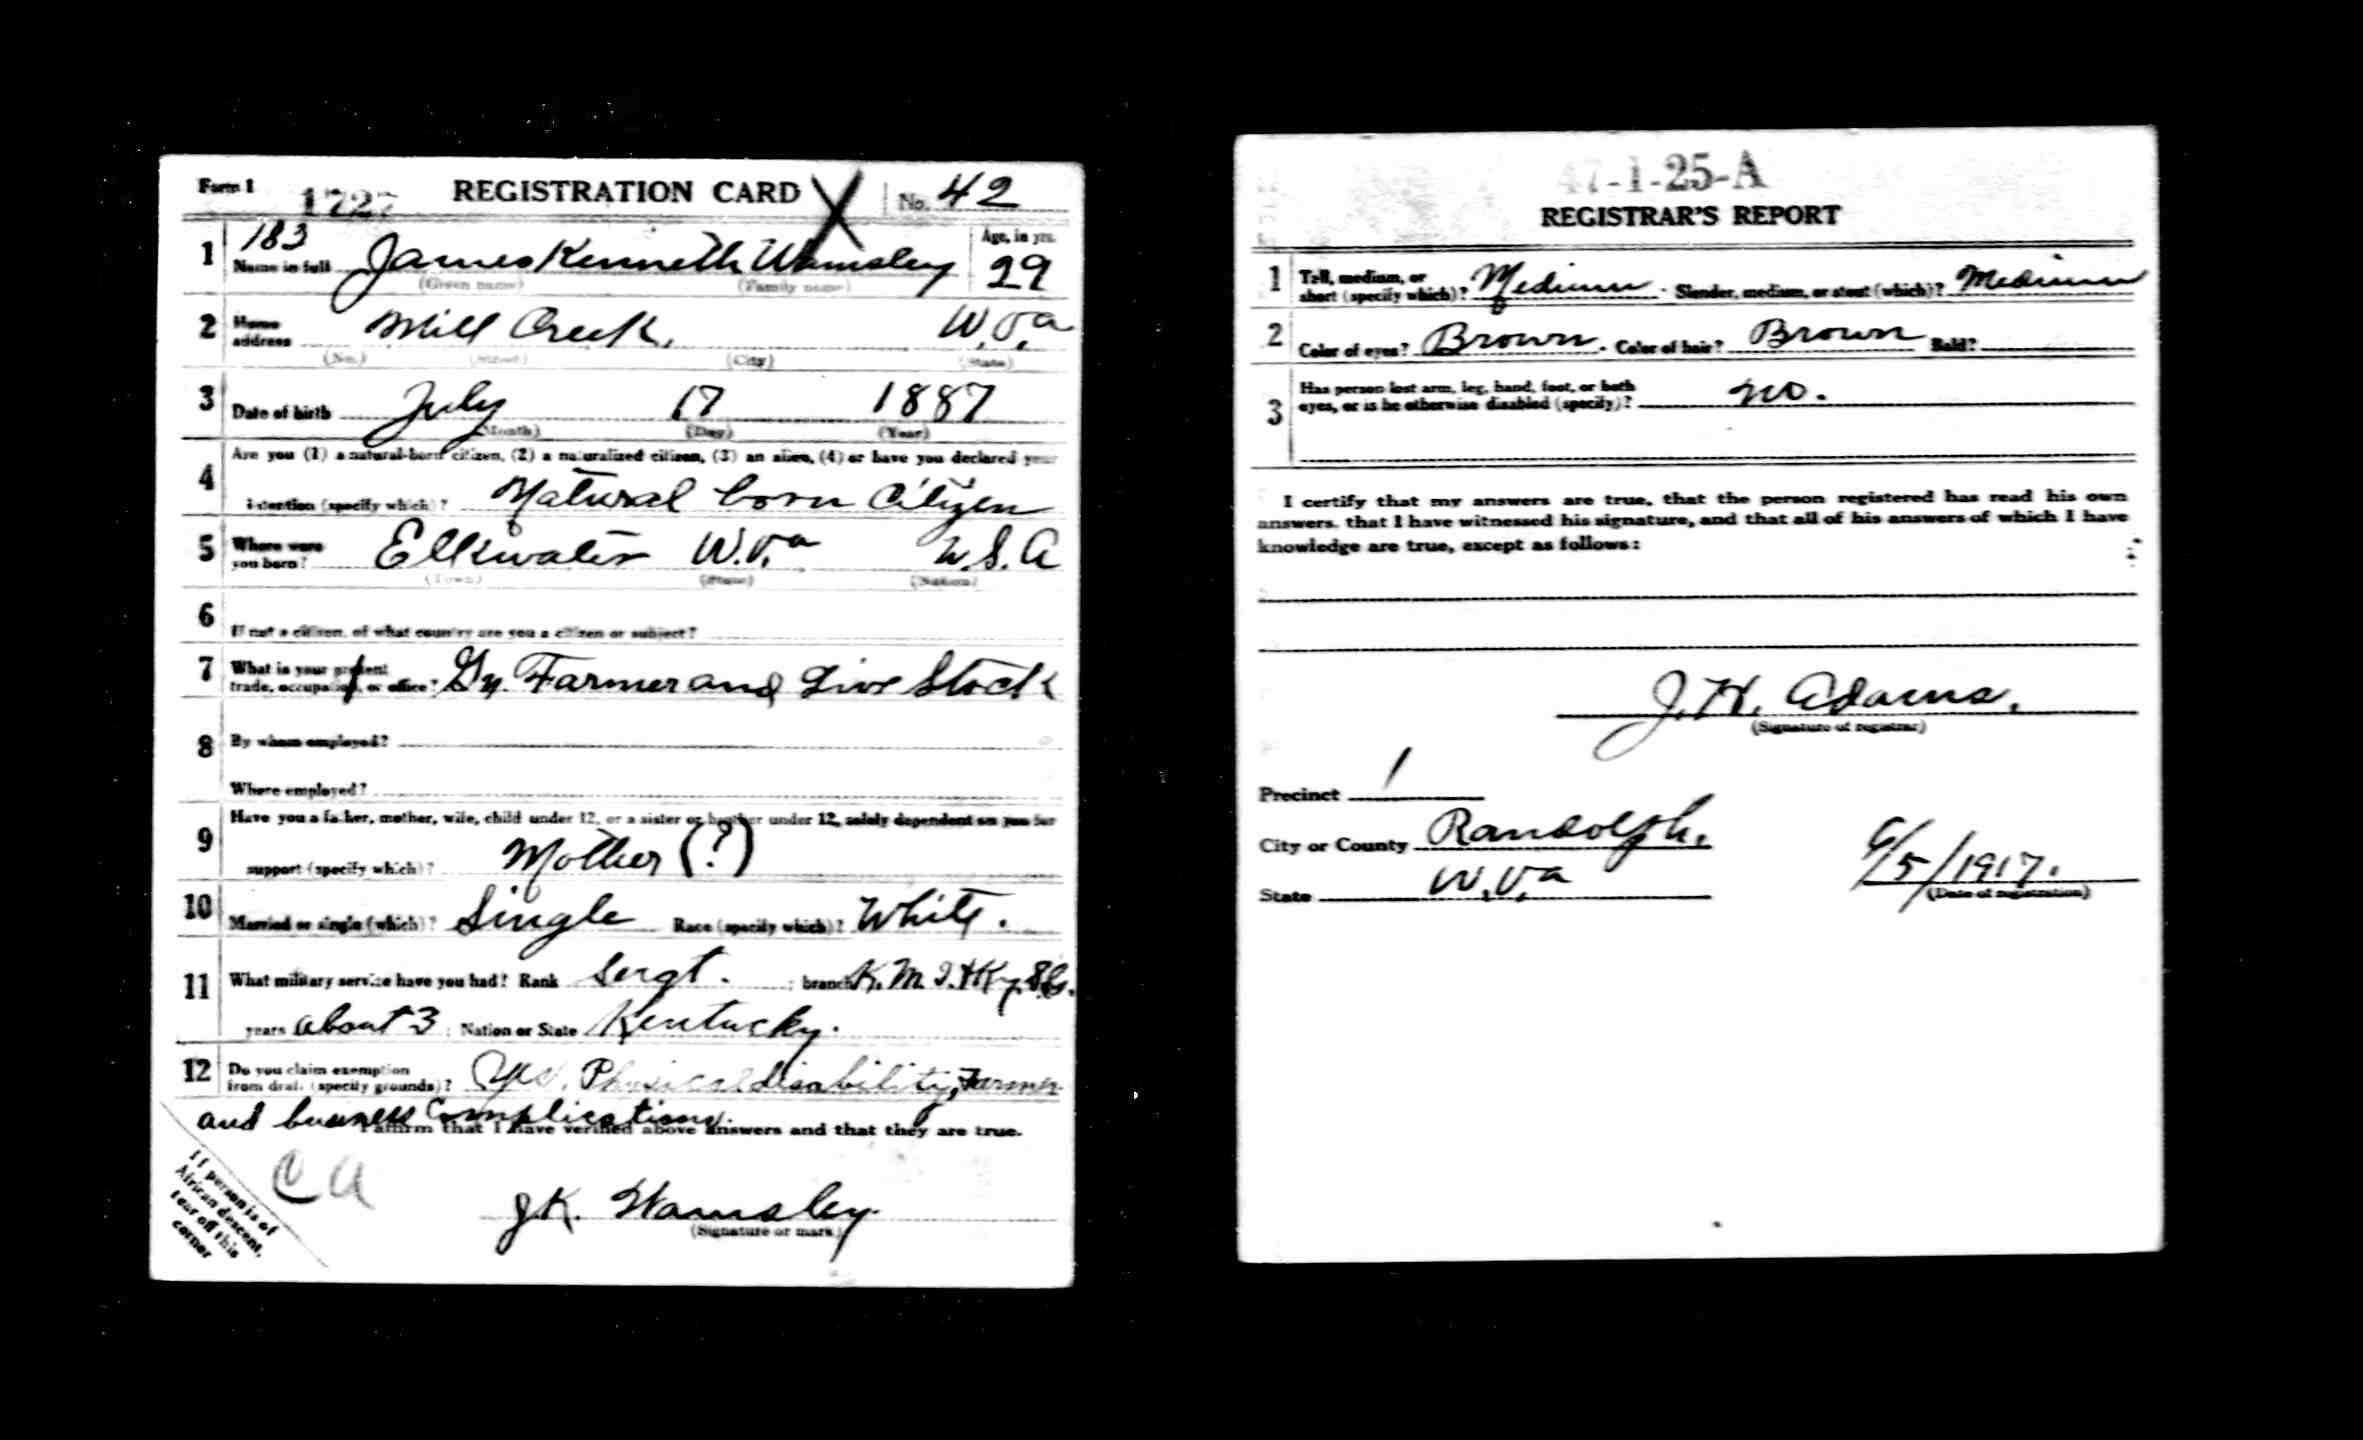 Form 1 1727 REGISTRATION CARD X No. 42
183
1 Name in full James Kenneth Wamsley Age, in yrs. 29
(Given name) (Family name)
2 Home address Mill Creek, W.Va
(No.) (Street) (City) (State)
3 Date of birth July 17 1887
(Month) (Day) (Year)
4 Are you (1) a natural-born citizen, (2) a naturalized citizen, (3) an alien, (4) or have you declared your
intention (specify which)? Natural born Citizen
5 Where were you born? Elkwater W.Va U.S.A
(Town) (State) (Nation)
6 If not a citizen, of what country are you a citizen or subject?
7 What is your present
trade, occupation, or office? Farmer and Live Stock
8 By whom employed?
Where employed?
9 Have you a father, mother, wife, child under 12, or a sister or brother under 12, solely dependent on you for
support (specify which)? Mother (?)
10 Married or single (which)? Single Race (specify which)? White.
11 What military service have you had? Rank Sergt. ; branch K. M. I. & Ky.
years about 3 ; Nation or State Kentucky.
12 Do you claim exemption
from draft (specify grounds)? Yes. Physical disability, Farmer
and business Complications.
I affirm that I have verified above answers and that they are true.
C A
J K. Wamsley
(Signature or mark)
If person is of
African descent,
tear off this
corner
47-1-25-A
REGISTRAR'S REPORT
1 Tall, medium, or
short (specify which)? Medium. Slender, medium, or stout (which)? Medium
2 Color of eyes? Brown. Color of hair? Brown Bald?
3 Has person lost arm, leg, hand, foot, or both
eyes, or is he otherwise disabled (specify)? no.
I certify that my answers are true, that the person registered has read his own
answers, that I have witnessed his signature, and that all of his answers of which I have
knowledge are true, except as follows:
J. H. Adams.
(Signature of registrar)
Precinct 1
City or County Randolph.
State W.Va
6/5/1917.
(Date of registration)